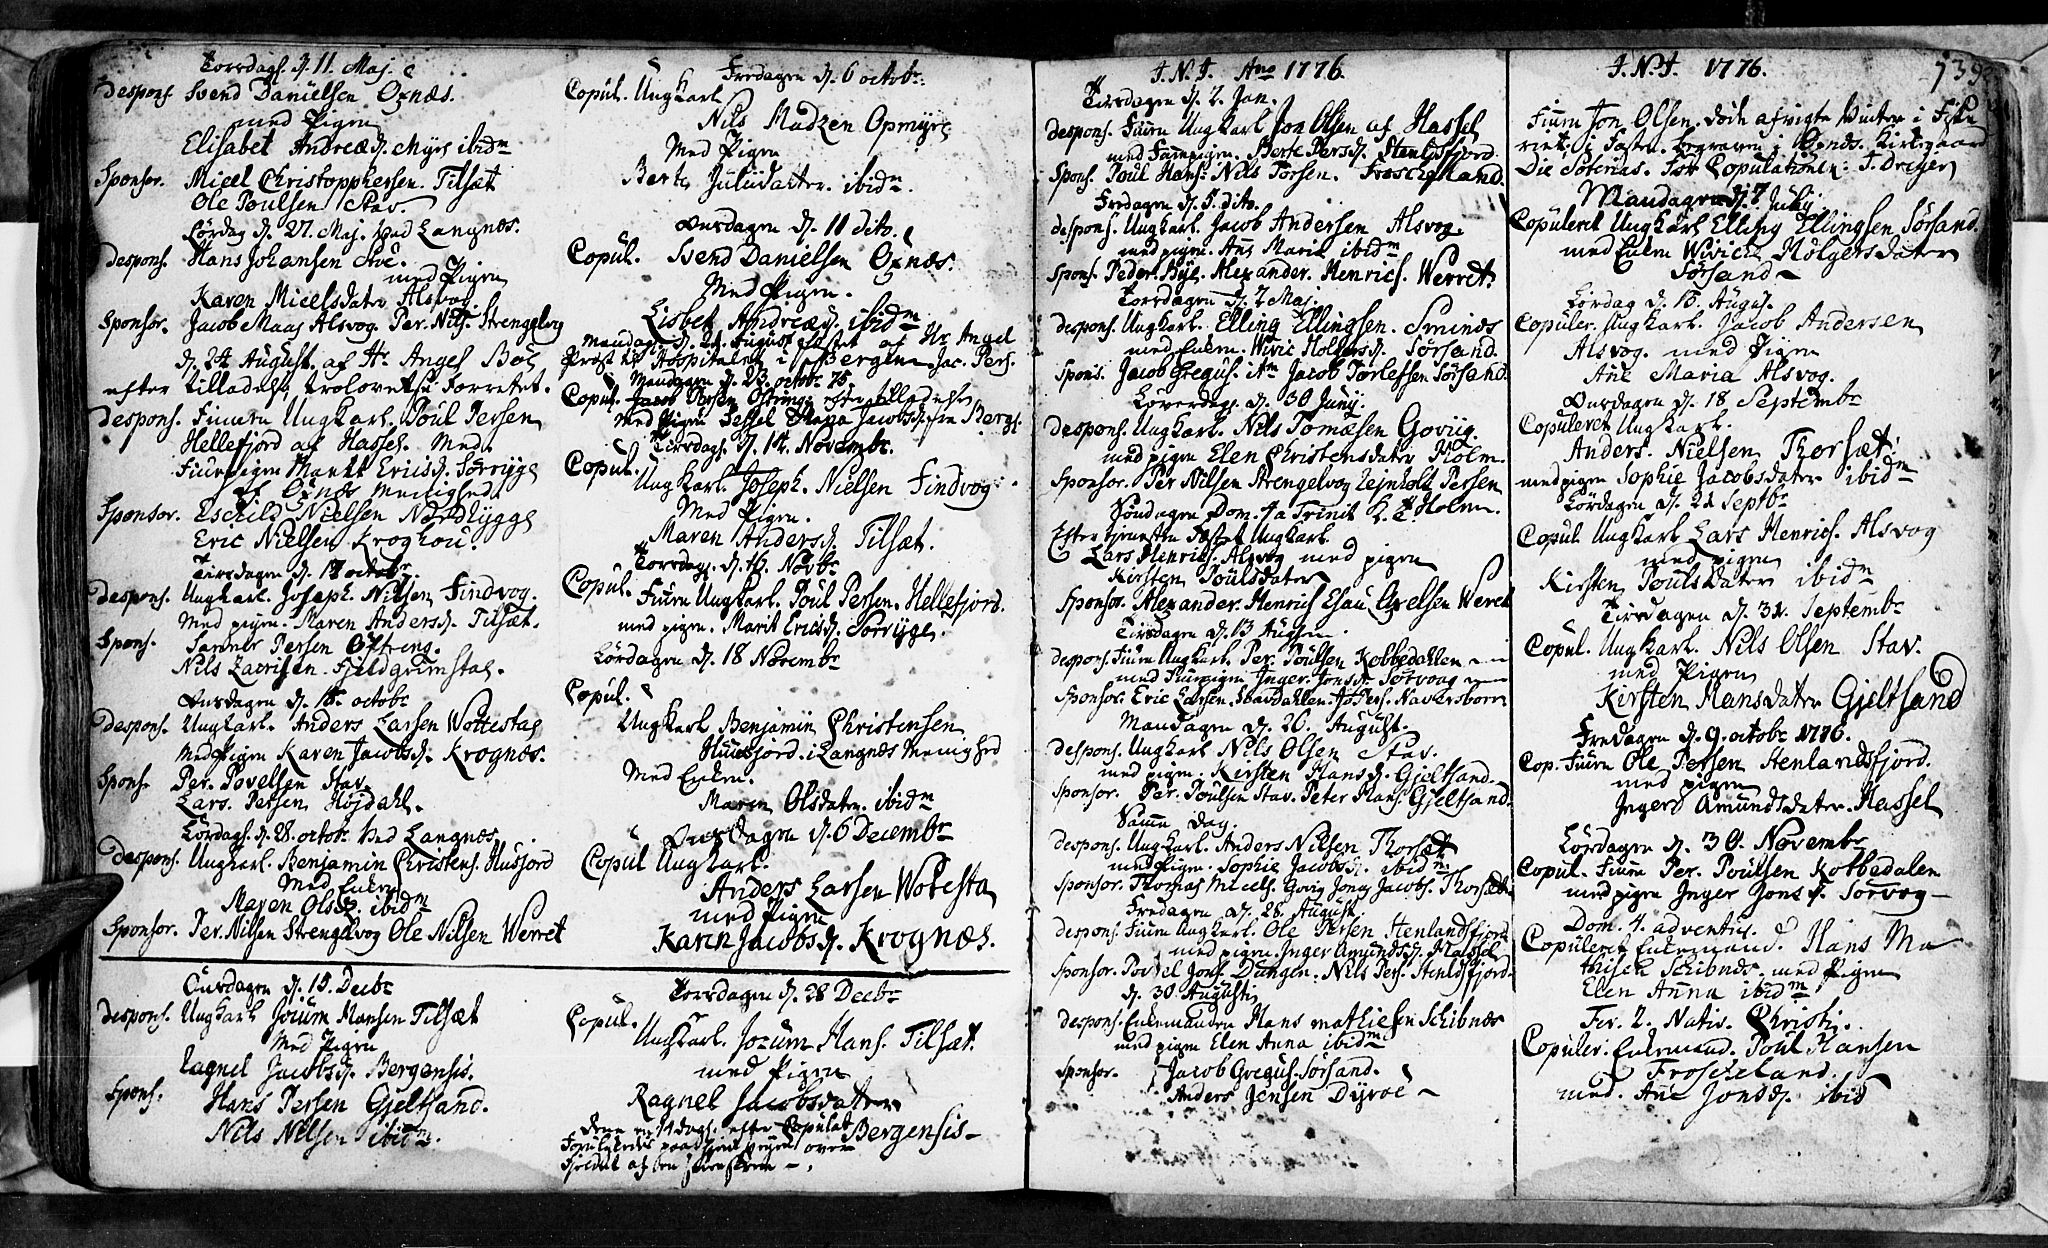 Torsdags. d. 11. Maj.
Despons. Svend Danielsen Oxnæs.
med Pigen
Elisabet Andreæd. Myre ibidm
Sponsor. Micel Christopphersen. Tilsæt
Ole Poulsen Stav.
Lørdag d. 27. Maj. ved Langnæs.
Despons. Hans Johansen Aoe.
med Pigen
Karen Micelsdater Alsvog.
Sponsor. Jacob Maas Alsvog. Per. Nils. Strengelvog
d. 24 August. af Hr. Angel Bøe
efter tilladelse, trolovelse forrettet.
Despons. Finnen Ungkarl. Poul Persen
Hellefjord af Hassel. Med
Finnepigen Marit Ericsd. Sørryge
af Oxnæs Meenighed.
Sponsor. Eschild Nielsen Nordrygge
Eric Nielsen Kroghou.
Tirsdagen d. 17 octobr.
Despons. Ungkarl. Joseph. Nilsen Findvog.
Med pigen. Maren Andersd. Tilsæt.
Spons. Samuel Persen Ostreng.
Nils Zacrisen. Fjeldgrimstad.
Onsdagen d. 18. octobr
Despons. Ungkarl. Anders Larsen Wottestad
Med Pigen Karen Jacobsd. Krognæs.
Spons. Per. Povelsen Stav
Lars. Persen Højdahl.
Lørdags. d. 28. octobr. ved Langnæs.
Despons. Ungkarl. Benjamin Christens. Husjord
Med Enken
Maren Olsd. ibidm
Sponsor. Per. Nilsen Strengelvog Ole Nilsen Werret
Onsdagen d. 15. Decbr
Despons. Ungkarl Joium Hansen Tilsæt
Med Pigen
Ragnel Jacobsd. Bergensis.
Spons. Hans Persen Gjeltsand.
Nils Nilsen ibidm.
Fredagen d. 6 octobr.
Copul. Ungkarl
Nils Madzen Opmyre
Med Pigen
Berte Juliidaater. ibidm.
Onsdagen d. 11 dito.
Copul. Svend Danielsen Oxnæs.
Med Pigen.
Lisbet Andreæd. ibidm
Mandagen d. 21. August af Hr. Angel
Præst til Hospitalet i Bergen Jac. Pers.
Mandagen d. 23. octobr 75.
Copul. Jacob Persen Ostreng efter tilladelse
Med Pigen Sessel Maria Jacobsd. fra Bergh.
Tirsdags. d. 14. Novembr.
Copul. Ungkarl. Joseph. Nielsen Findvog.
Med Pigen.
Maren Andersd. Tilsæt.
Torsdag. d. 16. Novbr
Copul. Finn Ungkarl. Poul Persen. Hellefjord.
med pigen. Marit Ericsd. Sorryge.
Lørdagen d. 18 Novembr
Copul.
Ungkarl Benjamin Christensen
Huusjord. i Langnæs Menighed
Med Enken.
Maren Olsdater. ibidm
Onsdagen d. 6 Decembr
Copul Ungkarl.
Anders Larsen Wotesta
med Pigen
Karen Jacobsd. Krognæs.
Torsdagen d. 28 Decbr
Copul.
Ungkarl. Jorum. Hans. Tilsæt.
med Pigen
Ragnel Jacobsdatter
Bergensis
Denne er 14 dage. efter Copulat
over
Fjeldet af
I. N. I. Ano 1776.
Tirsdagen d. 2. Jan.
Despons. Finn Ungkarl Jon Olsen af Hassel
med Finnpigen. Berte Persd. Stenlsfjord.
Spons. Poul Hans. Nils Torsen. Froscheland.
Fredagen d. 5. dito.
Despons. Ungkarl. Jacob Andersen Alsvog.
med pigen. Ane Maria ibidm
Spons. Peder Bye. Alexander. Henrics. Werret.
Torsdagen d. 2 Maj.
Despons. Ungkarl. Elling Ellingsen. Sminds
med Enken. Wivic Holgersd. Sørsand.
Spons. Jacob Gregus. itm Jacob Torlefsen Sørsand
Løverdag d. 30 Junij.
Despons. Ungkarl. Nils Tomæsen Goviig.
med pigen Elen Christensdater Holm.
Sponsor. Per Nilsen Strengelvog Rejnholt Persen
Søndagen Dom. 4a Trinit Holm.
Efter tjenesten Fæstet Ungkarl.
Lars Henrics. Alsvog med pigen
Kirsten Poulsdater
Sponsor. Alexander. Henrics Esau Axelsen Weret
Tirsdagen d. 13 August.
Despons. Finn Ungkarl. Per. Poulsen Kobbedahlen
med Finnpigen Inger. Jonsd. Sorvoug
Sponsor. Eric Larsen. Svardahlen.
Mandagen d. 20. August.
Despons. Ungkarl Nils Olsen Stav.
med pigen. Kirsten Hansd. Gjeltsand
Sponsor. Per. Poulsen Stav. Peter Hans. Gjeltsand.
Samme Dag.
Despons. Ungkarl. Anders Nilsen Thorsæt
med Pigen. Sophie Jacobsd. ibidm
Sponsor. Thomas Micels. Govig Jonas Jacobs. Thorsæt
Fredagen d. 28. August
Despons. Finn Ungkarl. Ole Persen Stenlandsfjord
med pigen. Inger Amundsd. Hassel
Sponsor. Povel Jons. Dungen. Nils Pers. Stenlsfjord.
d. 30 Augustij
Despons. Enkemanden Hans Mathiesen Schibnes
med pigen Elen Anna ibidm
Sponsor. Jacob Gregus. Sørsand.
Anders Jensen Dyroe
I. N. I. 1776.
139
Finn Jon Olsen. døde afvigte Vinter i Fiske
riet i Fasten. begraven i Oxnes. Kirkegaard
Die Soterias. For Copulationen. I. Dreyer
Mandagen d. 7. Julij.
Copuleret Ungkarl Elling Ellingsen Sørsand.
med Enken Wivicke Holgersdater
Sørsand
Lørdag d. 15. August.
Copuler. Ungkarl. Jacob Andersen
Alsvog. med Pigen
Ane Maria Alsvog.
Onsdagen d. 18 Septembr
Copuleret Ungkarl.
Anders. Nielsen Thorsæt.
med pigen Sophie Jacobsdater ibidm
Lørdagen d. 21 Septbr
Copul. Ungkarl Lars Henrics. Alsvog
med pigen
Kirsten Poulsdater ibidm
Tirsdagen d. 31. Septembr
Copul. Ungkarl. Nils Olsen Stav.
med Pigen
Kirsten Hansdater Gjeltsand
Fredagen d. 9. octobr 1776.
Cop. Finn Ole Persen Stenlandsfjord.
med pigen
Ingerd Amundsdater. Hassel
Lørdagen d. 30. Novembr
Copul. Finn Per. Poulsen Kobbedalen
med pigen Inger Jonsd. Sorvog
Dom. 4. adventus.
Copuleret Enkemand. Hans Ma
thisen Schibnes. med Pigen
Elen Anna ibidm
Fer. 2. Nativ. Christi.
Copuler. Enkemand. Poul Hansen
Froscheland.
med. Ane Jonsd. ibid